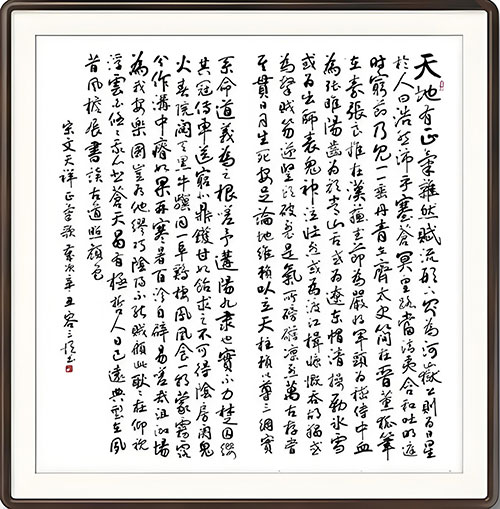 天地有正氣雜然賦流形下則為河嶽上則為日星
於人曰浩然沛乎塞蒼冥皇路當清夷含和吐明庭
時窮節乃見一一垂丹青在齊太史簡在晉董狐筆
在秦張良椎在漢蘇武節為嚴將軍頭為嵇侍中血
為張睢陽齒為顏常山舌或為遼東帽清操厲冰雪
或為出師表鬼神泣壯烈或為渡江楫慷慨吞胡羯或
為擊賊笏逆豎頭破裂是氣所磅礴凜烈萬古存當
其貫日月生死安足論地維賴以立天柱賴以尊三綱實
系命道義為之根嗟予遘陽九隸也實不力楚囚纓
其冠傳車送窮北鼎鑊甘如飴求之不可得陰房闃鬼
火春院閟天黑牛驥同一皁雞棲鳳凰食一朝蒙霧露
分作溝中瘠如此再寒暑百沴自辟易嗟哉沮洳場
為我安樂國豈有他繆巧陰陽不能賊顧此耿耿在仰視
浮雲白悠悠我心悲蒼天曷有極哲人日已遠典型在夙
昔風檐展書讀古道照顏色
宋文天祥正氣歌歲次辛丑